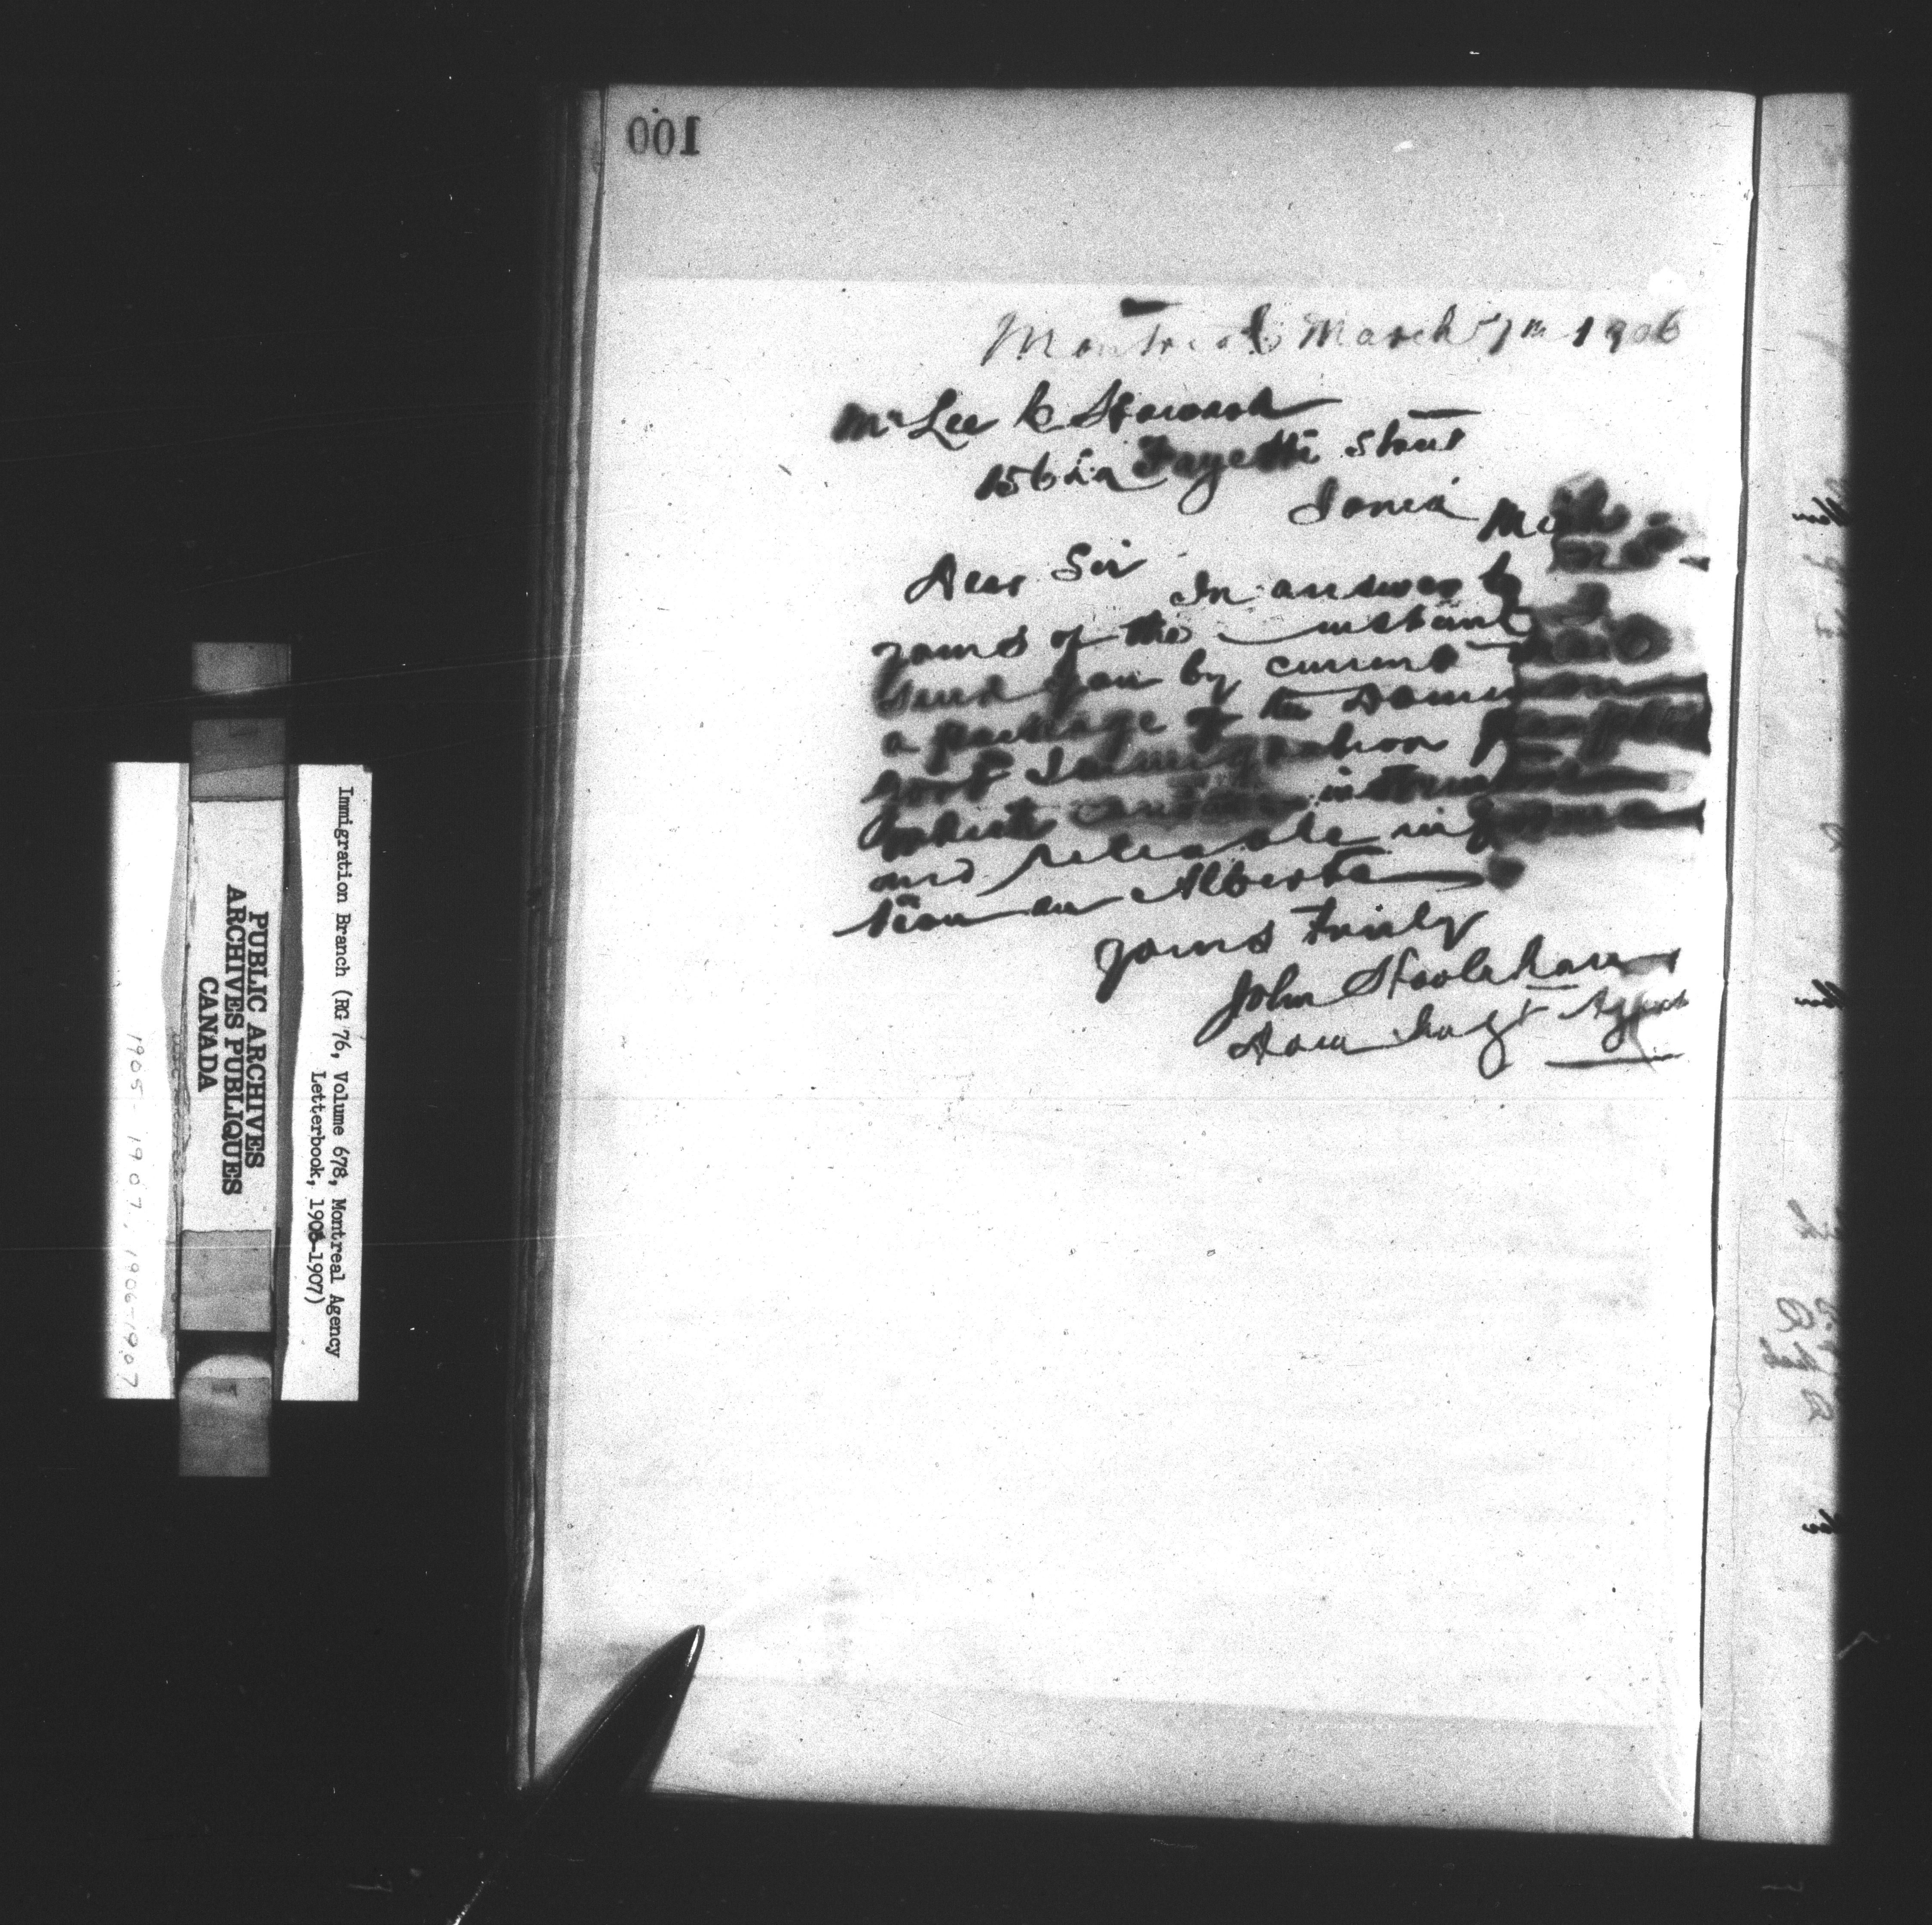 100
Montreal March 7th 1906
Mr Lee
156 La Fayette Street
Ionia Mich
Dear Sir
In answer to
yours of the instant
send you by current
a package of the Dominion
govt Immigration pamphlets
which
and reliable informa
tion on Alberta
yours truly
John Hoolahan
Dom Imgt Agent
Immigration Branch (RG 76, Volume 678, Montreal Agency
Letterbook, 1906-1907)
PUBLIC ARCHIVES
ARCHIVES PUBLIQUES
CANADA
1905-1907, 1906-1907